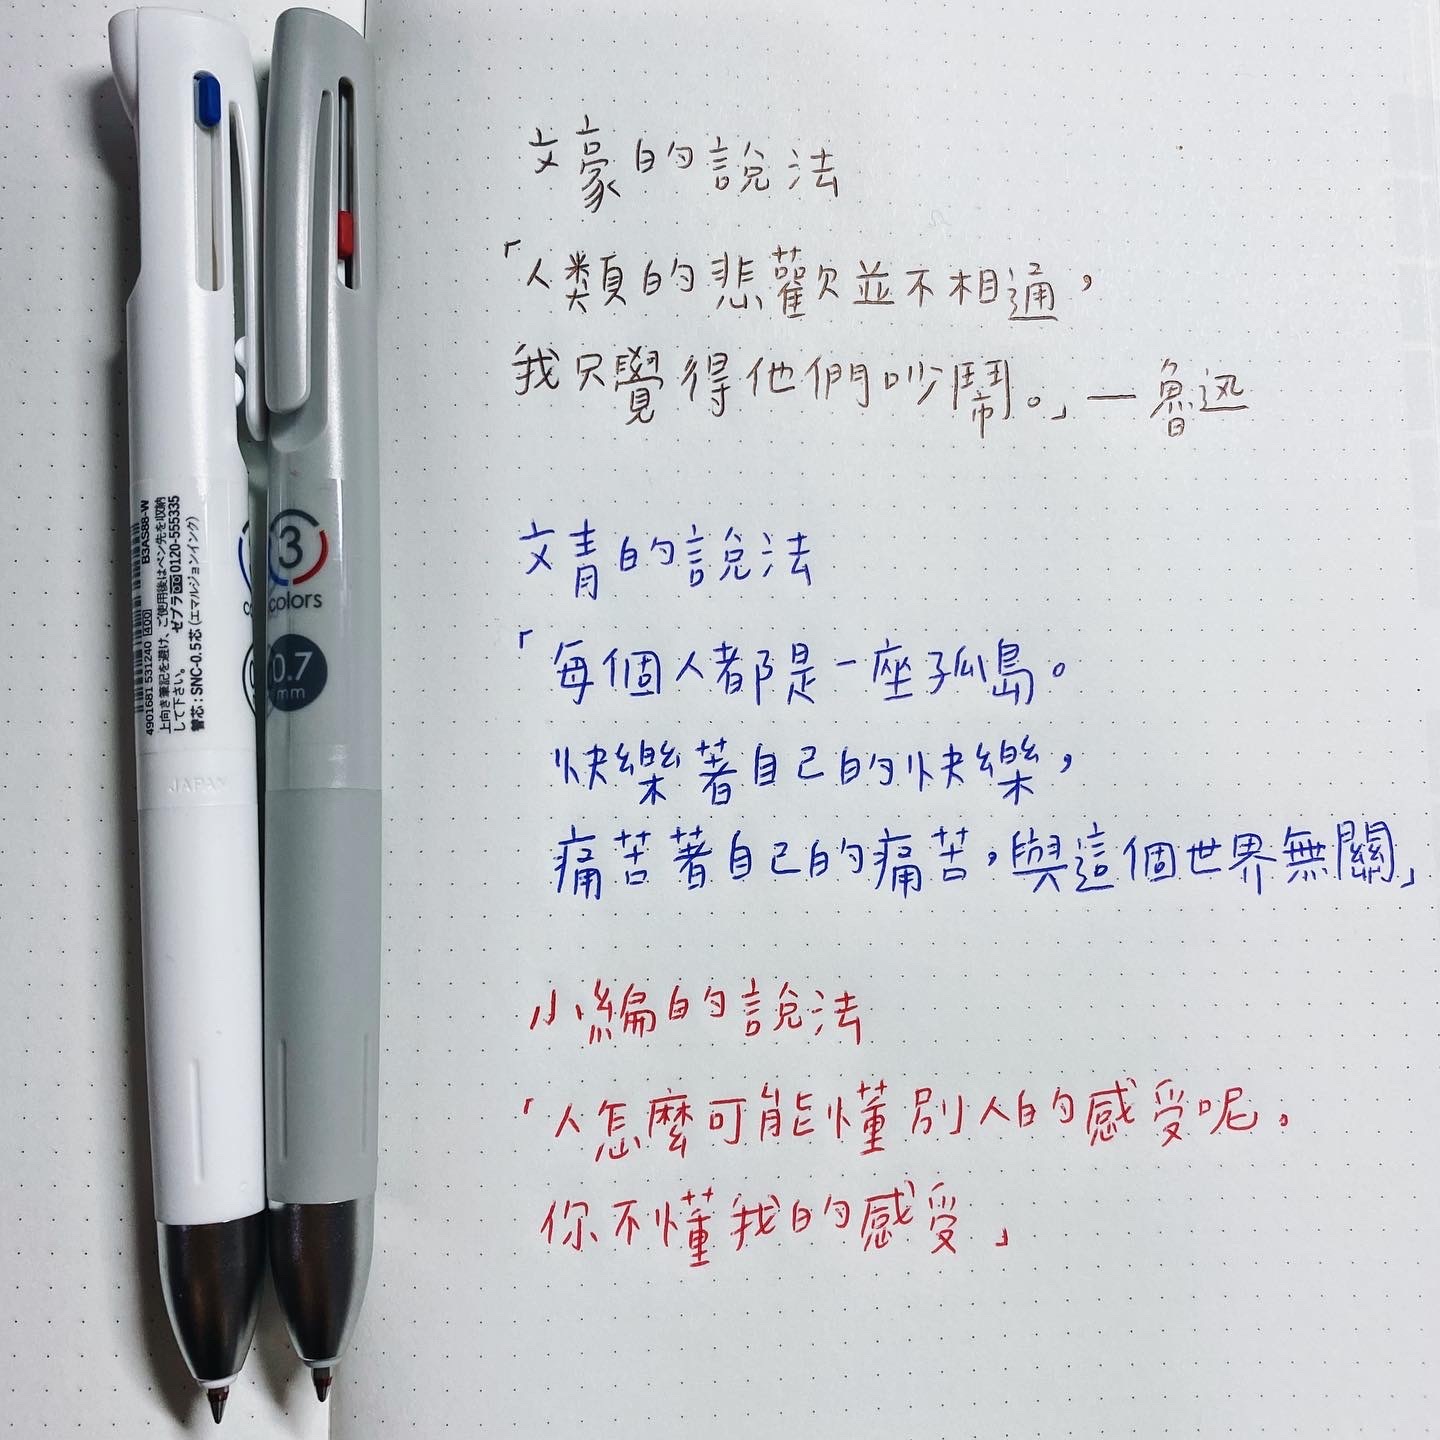 文豪的說法
「人類的悲歡並不相通，
我只覺得他們吵鬧。」—魯迅
文青的說法
「每個人都是一座孤島。
快樂著自己的快樂，
痛苦著自己的痛苦，與這個世界無關」
小編的說法
「人怎麼可能懂別人的感受呢。
你不懂我的感受」
4901681 531240 400 B3AS88-W
上向き筆記を避け、ご使用後はペン先を収納
して下さい。 ゼブラ 0120-555335
替芯：SNC-0.5芯 (エマルジョンインク)
JAPAN
3
colors
0.7
mm